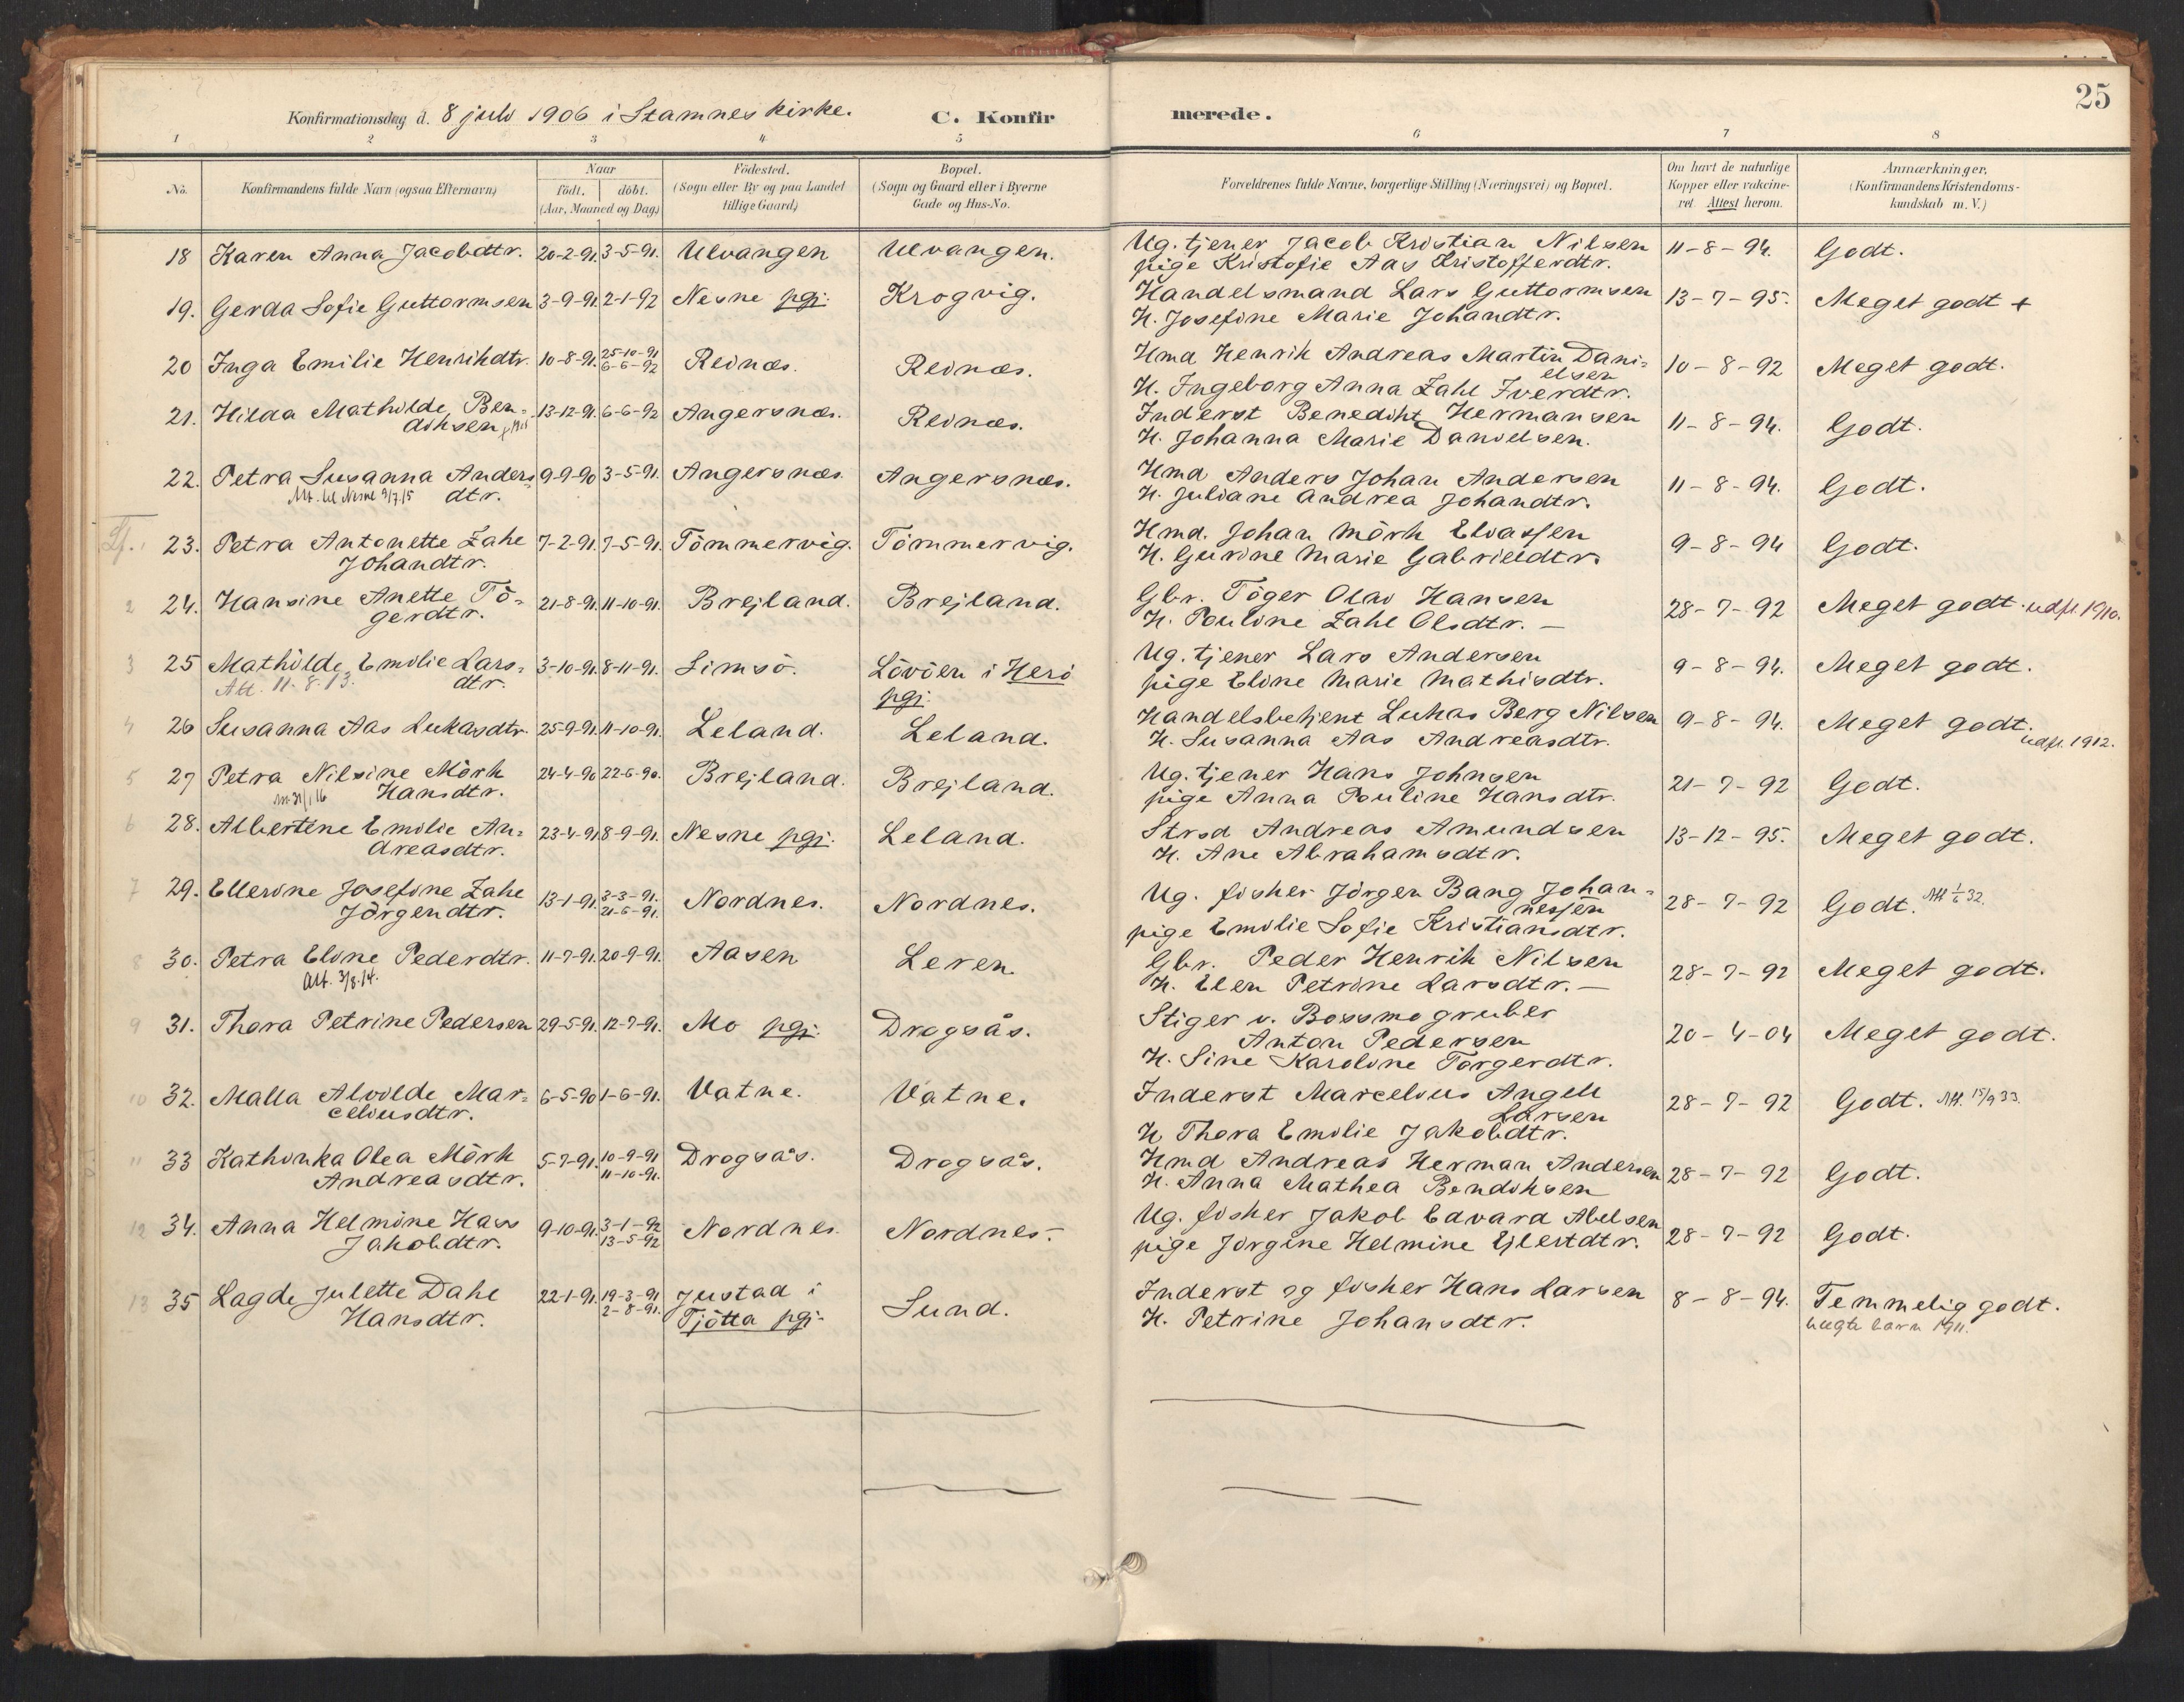 25
Konfirmationsdag d. 8 juli 1906 i Stamnes kirke. C. Konfirmerede.
1 2 3 4 5 6 7 8
No. Konfirmandens fulde Navn (ogsaa Efternavn) Naar födt. döbt. (Aar, Maaned og Dag) Födested. (Sogn eller By og paa Landet tillige Gaard) Bopæl. (Sogn og Gaard eller i Byerne Gade og Hus-No. Forældrenes fulde Navne, borgerlige Stilling (Næringsvei) og Bopæl. Om havt de naturlige Kopper eller vakcineret. Attest herom. Anmærkninger. (Konfirmandens Kristendomskundskab m. V.)
18 Karen Anna Jacobdtr. 20-2-91. 3-5-91. Ulvangen Ulvangen. Ug. tjener Jacob Kristian Nilsen 11-8-94. Godt.
pige Kristofie Aas Kristofferdtr.
19. Gerda Sofie Guttormsen 3-9-91. 2-1-92 Nesne pgj. Krogvig. Handelsmand Lars Guttormsen 13-7-95. Meget godt +
H. Josefine Marie Johandtr.
20 Inga Emilie Henrikdtr. 10-8-91. 25-10-91 6-6-92 Reinæs. Reinæs. Hmd Henrik Andreas Martin Dani- 10-8-92 Meget godt.
elsen
H. Ingeborg Anna Zahl Iverdtr.
21. Hilda Mathilde Ben- 13-12-91. 6-6-92 Angersnæs. Reinæs. Inderst Benedikt Hermansen 11-8-94. Godt.
diksen H. Johanna Marie Danielsen.
22. Petra Susanna Anders- 9-9-90 3-5-91. Angersnæs. Angersnæs. Hmd Anders Johan Andersen 11-8-94. Godt.
Att. til Nesne 9/7.15 dtr. H. Juliane Andrea Johandtr.
23. Petra Antonette Zahl 7-2-91. 7-5-91. Tömmervig. Tömmervig. Hmd. Johan Mörk Eliassen 9-8-94 Godt.
Johandtr. H. Gurine Marie Gabrieldtr.
2 24. Hansine Anette Tö- 21-8-91. 11-10-91. Brejland. Brejland. Gbr. Töger Olav Hansen 28-7-92 Meget godt. udfl. 1910.
gerdtr. H. Pouline Zahl Olsdtr. —
3 25 Mathilde Emilie Lars- 3-10-91. 8-11-91. Simsö. Lövöen i Herö Ug. tjener Lars Andersen 9-8-94. Meget godt.
Att. 11.8.13. dtr. pgj. pige Eline Marie Mathisdtr.
4 26 Susanna Aas Lukasdtr. 25-9-91. 11-10-91. Leland. Leland. Handelsbetjent Lukas Berg Nilsen 9-8-94. Meget godt.
H. Susanna Aas Andreasdtr. udfl. 1912.
5 27 Petra Nilsine Mörk 24-4-90 22-6-90. Brejland. Brejland. Ug. tjener Hans Johnsen 21-7-92 Godt.
Hansdtr. pige Anna Pouline Hansdtr.
6 28. Albertine Emilie An- 23-4-91. 8-9-91. Nesne pgj. Leland. Strsd Andreas Amundsen 13-12-95. Meget godt.
dreasdtr. H. Ane Abrahamsdtr.
7 29. Ellerine Josefine Zahl 13-1-91. 3-3-91. 21-6-91. Nordnes. Nordnes. Ug. fisker Jörgen Bang Johan- 28-7-92 Godt. Att 1/6 32.
Jörgendtr. nesjen
pige Emilie Sofie Kristiansdtr.
8 30. Petra Eline Pederdtr. 11-7-91. 20-9-91. Aasen Leren. Gbr. Peder Henrik Nilsen 28-7-92 Meget godt.
Att. 3/8.14. H. Elen Petrine Larsdtr. —
9 31. Thora Petrine Pedersen 29-5-91. 12-7-91. Mo pgj. Dragsås. Stiger v. Bossmo gruber 20-4-04 Meget godt.
Anton Pedersen
H. Sine Karoline Torgerdtr.
10 32. Malla Alvilde Mar- 6-5-90 1-6-91. Vatne. Vatne. Inderst Marcelius Angell 28-7-92 Godt. Att. 15/9 33.
celiusdtr. Larsen
H. Thora Emilie Jakobdtr.
11 33 Kathinka Olea Mörk 5-7-91. 10-9-91 11-10-91. Dragsås. Dragsås. Hmd Andreas Herman Andersen 28-7-92 Godt.
Andreasdtr. H. Anna Mathea Bendiksen
12 34. Anna Helmine Hass 9-10-91. 3-1-92 13-5-92 Nordnes. Nordnes. Ug. fisker Jakob Edvard Abelsen 28-7-92 Godt.
Jakobdtr. pige Jörgine Helmine Ejlertdtr.
13 35 Lagde Julette Dahl 22-1-91. 19-3-91 2-8-91. Justad i Sund. Inderst og fisker Hans Larsen 8-8-94. Temmelig godt.
Hansdtr. Tjötta pgj. H. Petrine Johansdtr. uegte barn 1911.